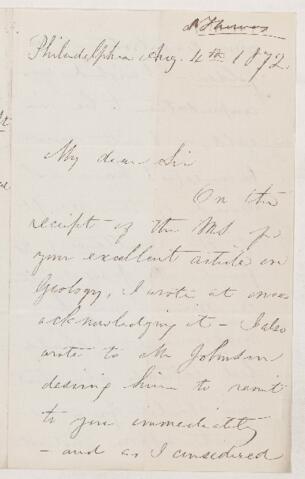 Philadelphia Aug. 4th 1872.
My dear Sir
On the
receipt of the MS. for
your excellent article on
Geology, I wrote at once
acknowledging it – I also
wrote to Mr Johnson
desiring him to remit
to you immediately
– and as I considered